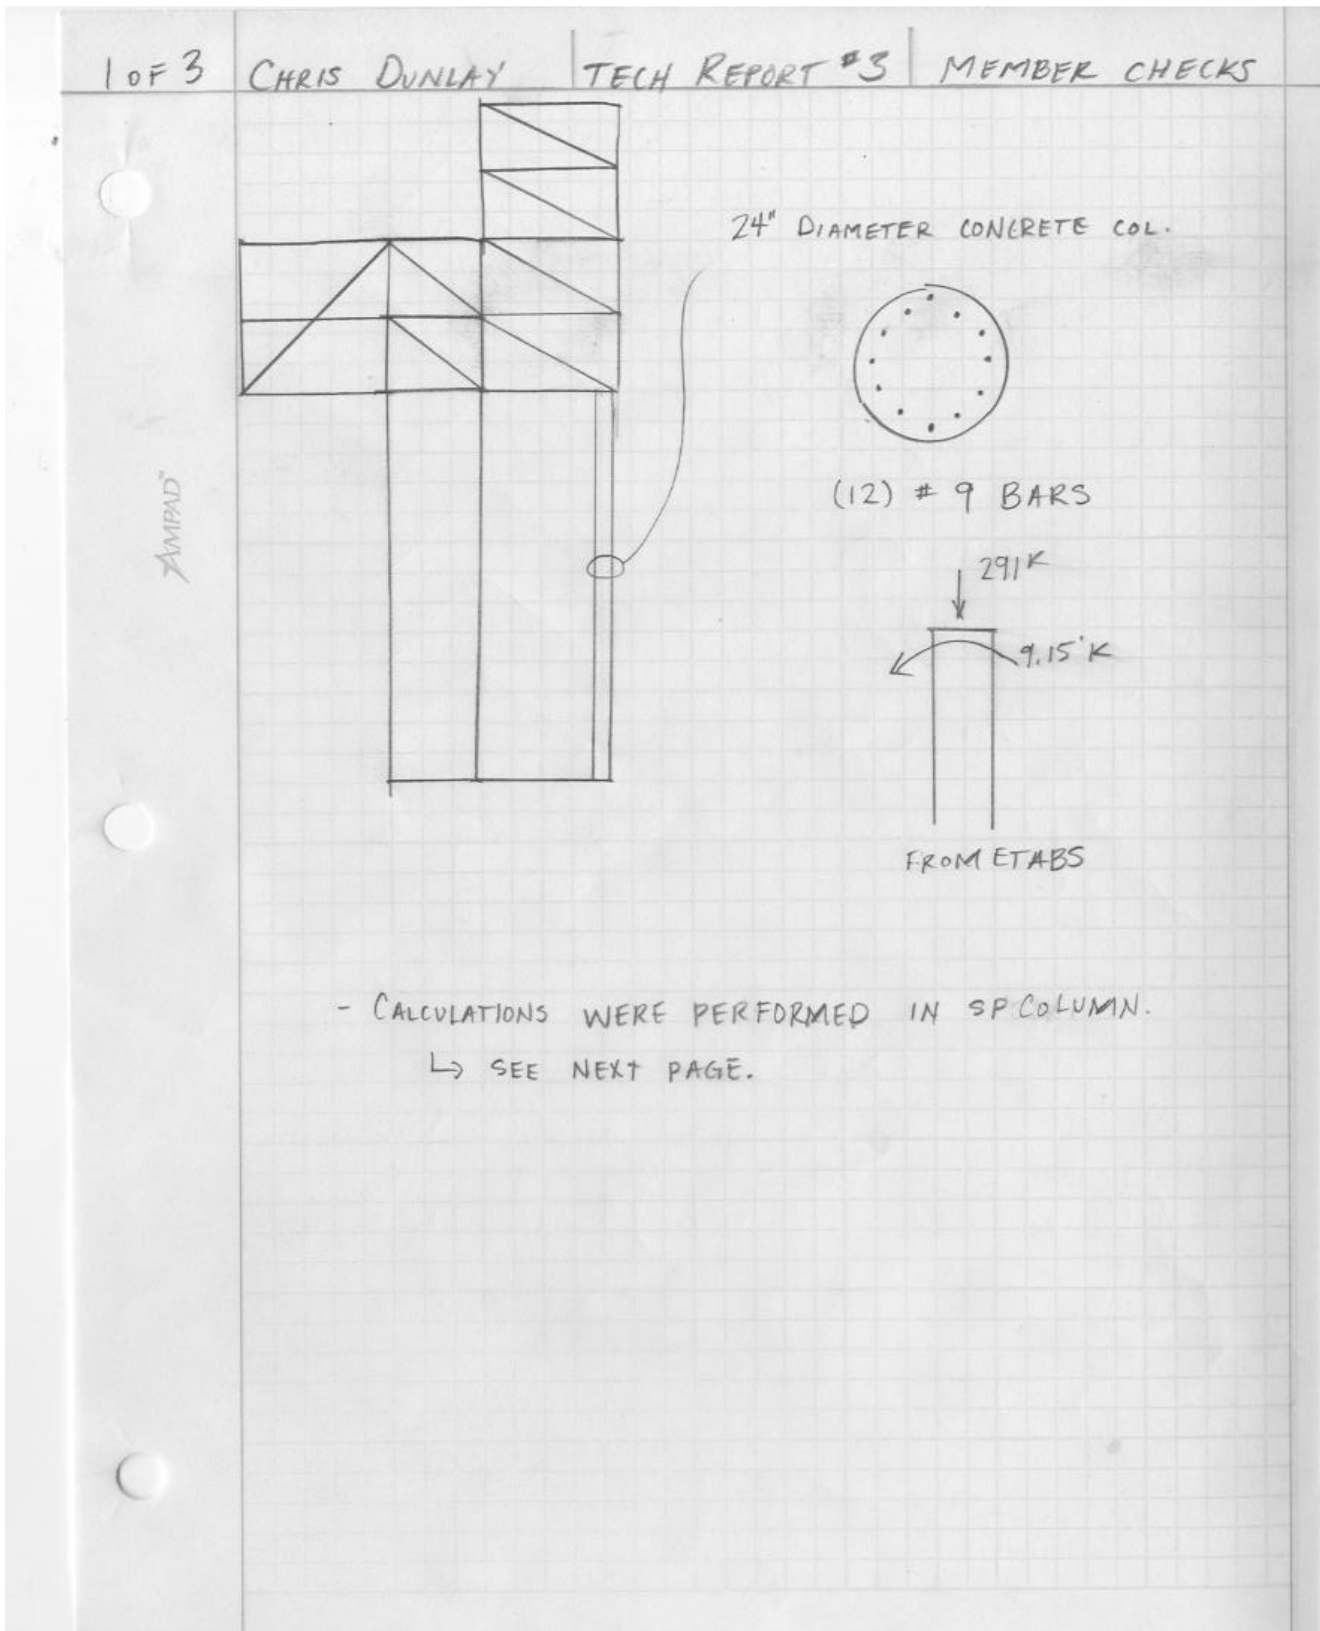 1 OF 3 CHRIS DUNLAY TECH REPORT #3 MEMBER CHECKS
24" DIAMETER CONCRETE COL.
(12) # 9 BARS
291K
9.15'K
FROM ETABS
- CALCULATIONS WERE PERFORMED IN SPCOLUMN.
↳ SEE NEXT PAGE.
AMPAD™